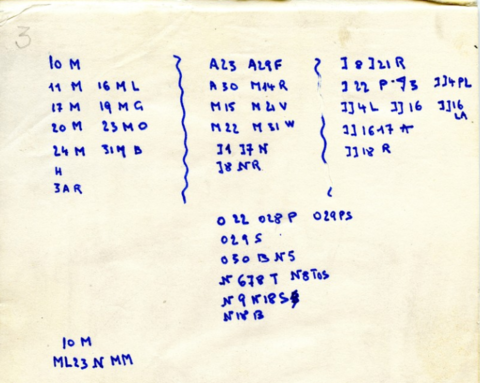 3
10 M
11 M 16 M L
17 M 19 M G
20 M 23 M O
24 M 31 M B
H
3 A R
A23 A29F
A 30 M14 R
M15 M21V
M22 M31 W
J1 J7 N
J8 N R
J 8 J21 R
J 22 P JJ4 PL
JJ4 L JJ 16 JJ16 LA
JJ16-17 A
JJ18 R
O 22 O28 P O29PS
O29 S
O30 B N5
N 678 T N8TOS
N 9 N18S
N18 B
10 M
ML23 N MM